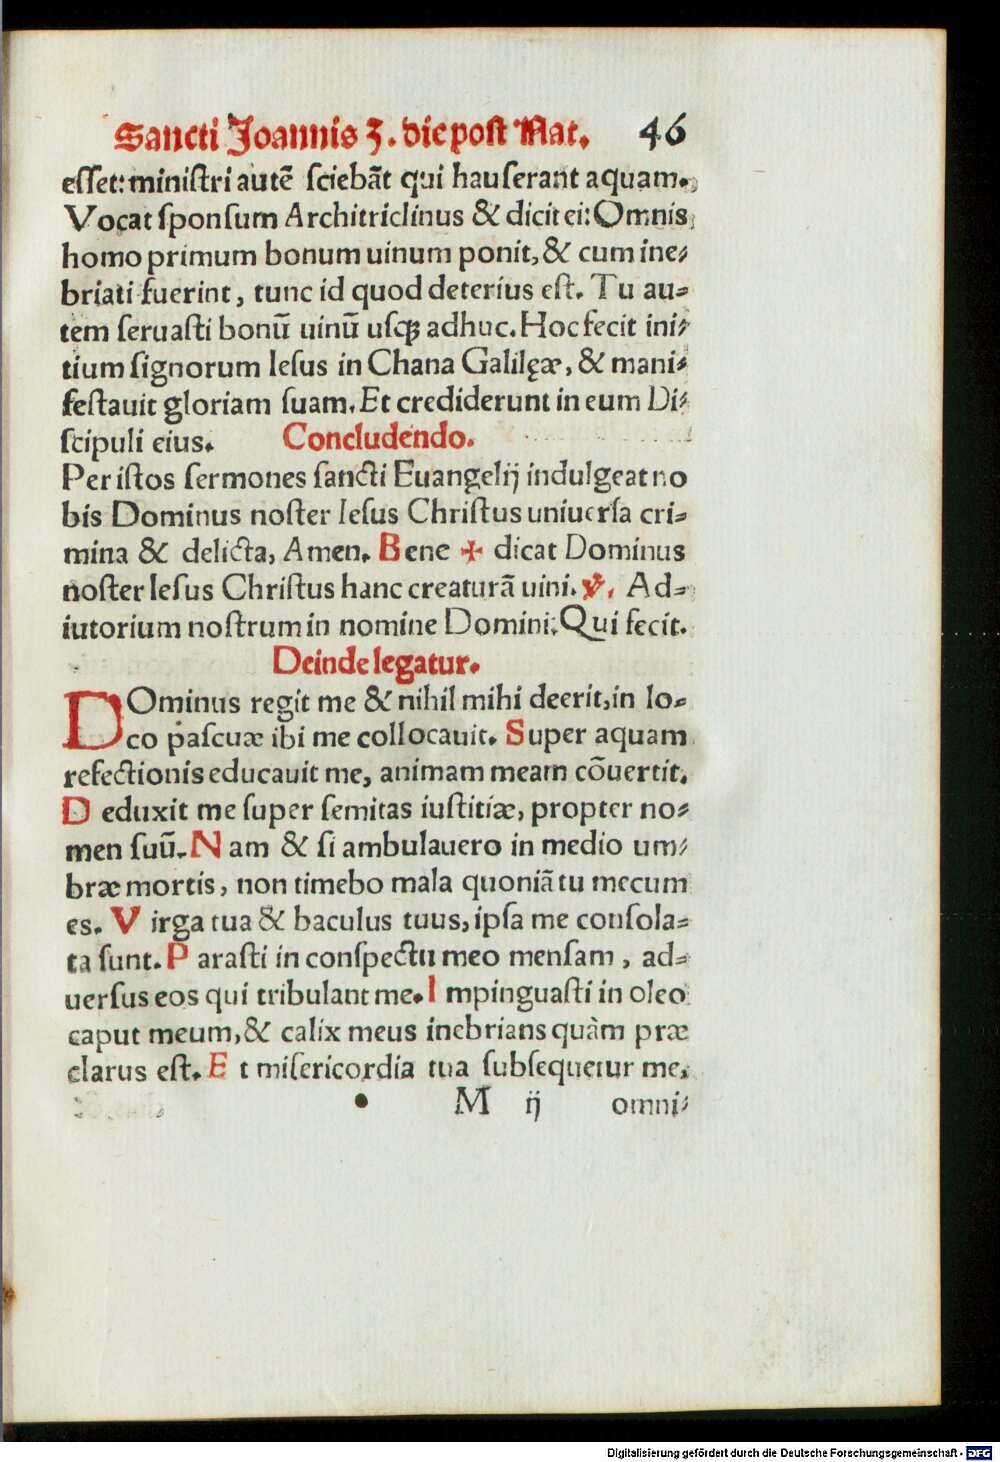 Sancti Joannis 3. die post Nat. 46
esſet: miniſtri autē ſciebāt qui hauſerant aquam.
Vocat ſponſum Architriclinus & dicit ei: Omnis
homo primum bonum uinum ponit, & cum ine⸗
briati fuerint, tunc id quod deterius eſt. Tu au⸗
tem ſeruaſti bonū uinū uſqꝫ adhuc. Hoc fecit ini⸗
tium ſignorum Ieſus in Chana Galilęæ, & mani⸗
feſtauit gloriam ſuam. Et crediderunt in eum Di⸗
ſcipuli eius. Concludendo.
Per iſtos ſermones ſancti Euangelij indulgeat no
bis Dominus noſter Ieſus Chriſtus uniuerſa cri⸗
mina & delicta, Amen. Bene ✠ dicat Dominus
noſter Ieſus Chriſtus hanc creaturā uini. ℣. Ad⸗
iutorium noſtrum in nomine Domini. Qui fecit.
Deinde legatur.
DOminus regit me & nihil mihi deerit, in lo⸗
co paſcuæ ibi me collocauit. Super aquam
refectionis educauit me, animam meam cōuertit.
D eduxit me ſuper ſemitas iuſtitiæ, propter no⸗
men ſuū. N am & ſi ambulauero in medio um⸗
bræ mortis, non timebo mala quoniā tu mecum
es. V irga tua & baculus tuus, ipſa me conſola⸗
ta ſunt. P araſti in conſpectu meo menſam, ad⸗
uerſus eos qui tribulant me. I mpinguaſti in oleo
caput meum, & calix meus inebrians quàm præ
clarus eſt. E t miſericordia tua ſubſequetur me,
M ij omni⸗
Digitalisierung gefördert durch die Deutsche Forschungsgemeinschaft - DFG